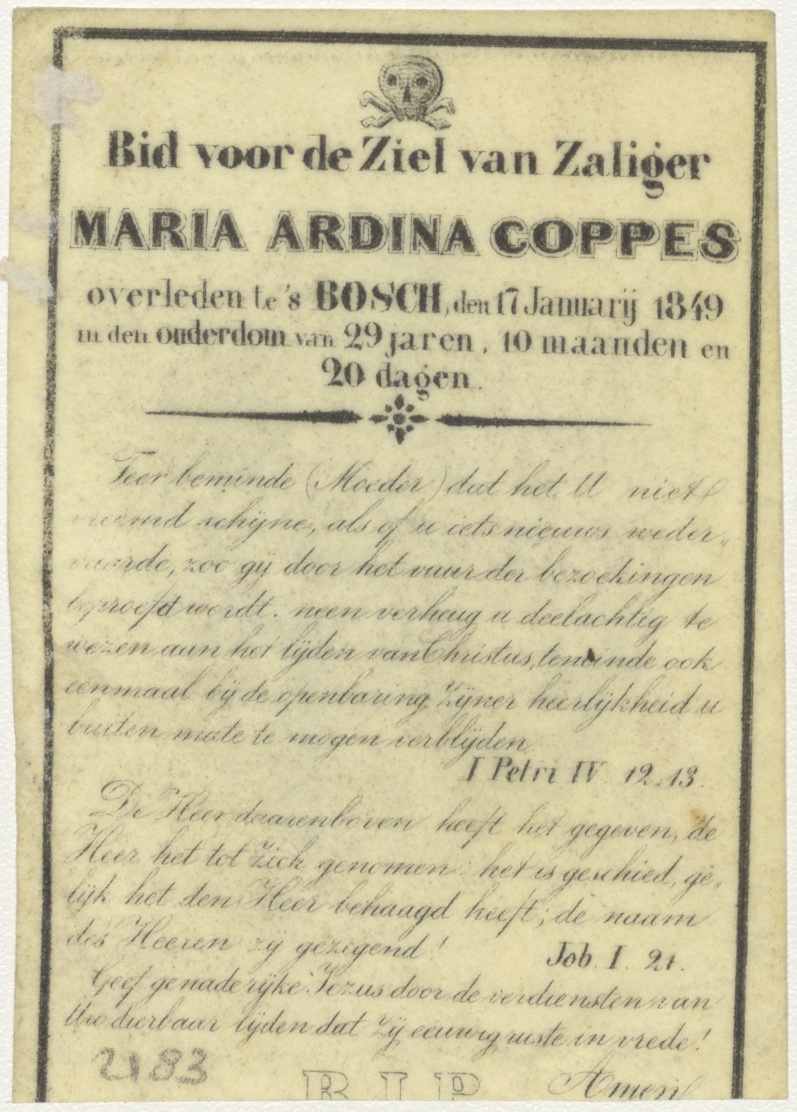 Bid voor de Ziel van Zaliger
MARIA ARDINA COPPES
overleden te 's BOSCH, den 17 Januarij 1849
in den ouderdom van 29 jaren, 10 maanden en
20 dagen.
Teer beminde (Moeder) dat het U niet
vreemd schijne, als of u iets nieuws weder„
vaarde, zoo gij door het vuur der bezoekingen
beproefd wordt. neen verheug u deelachtig te
wezen aan het lijden van Christus, teneinde ook
eenmaal bij de openbaring Zijner heerlijkheid u
buiten mate te mogen verblijden.
I Petri IV 12.13.
De Heer daarenboven heeft het gegeven, de
Heer het tot Zich genomen: het is geschied, ge„
lijk het den Heer behaagd heeft; de naam
des Heeren zij gezegend!
Job. I 21.
Geef genaderijke Jezus door de verdiensten van
Uw dierbaar lijden dat Zij eeuwig ruste in vrede!
2183
R.I.P. Amen